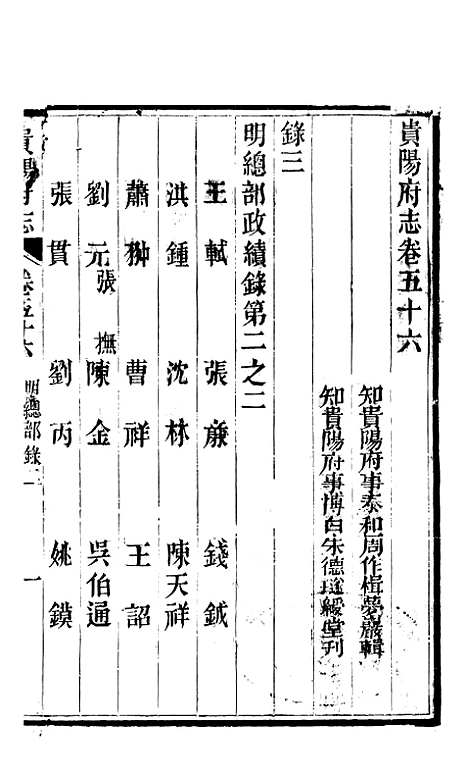 貴陽府志卷五十六
知貴陽府事泰和周作楫夢巖輯
知貴陽府事博白朱德璲綬堂刊
錄三
明總部政績錄第二之二
王軾 張廉 錢鉞
洪鍾 沈林 陳天祥
蕭翀 曹祥 王詔
劉元 張撫 陳金 吳伯通
張貫 劉丙 姚鏌
貴陽府志 卷五十六 明總部錄 一